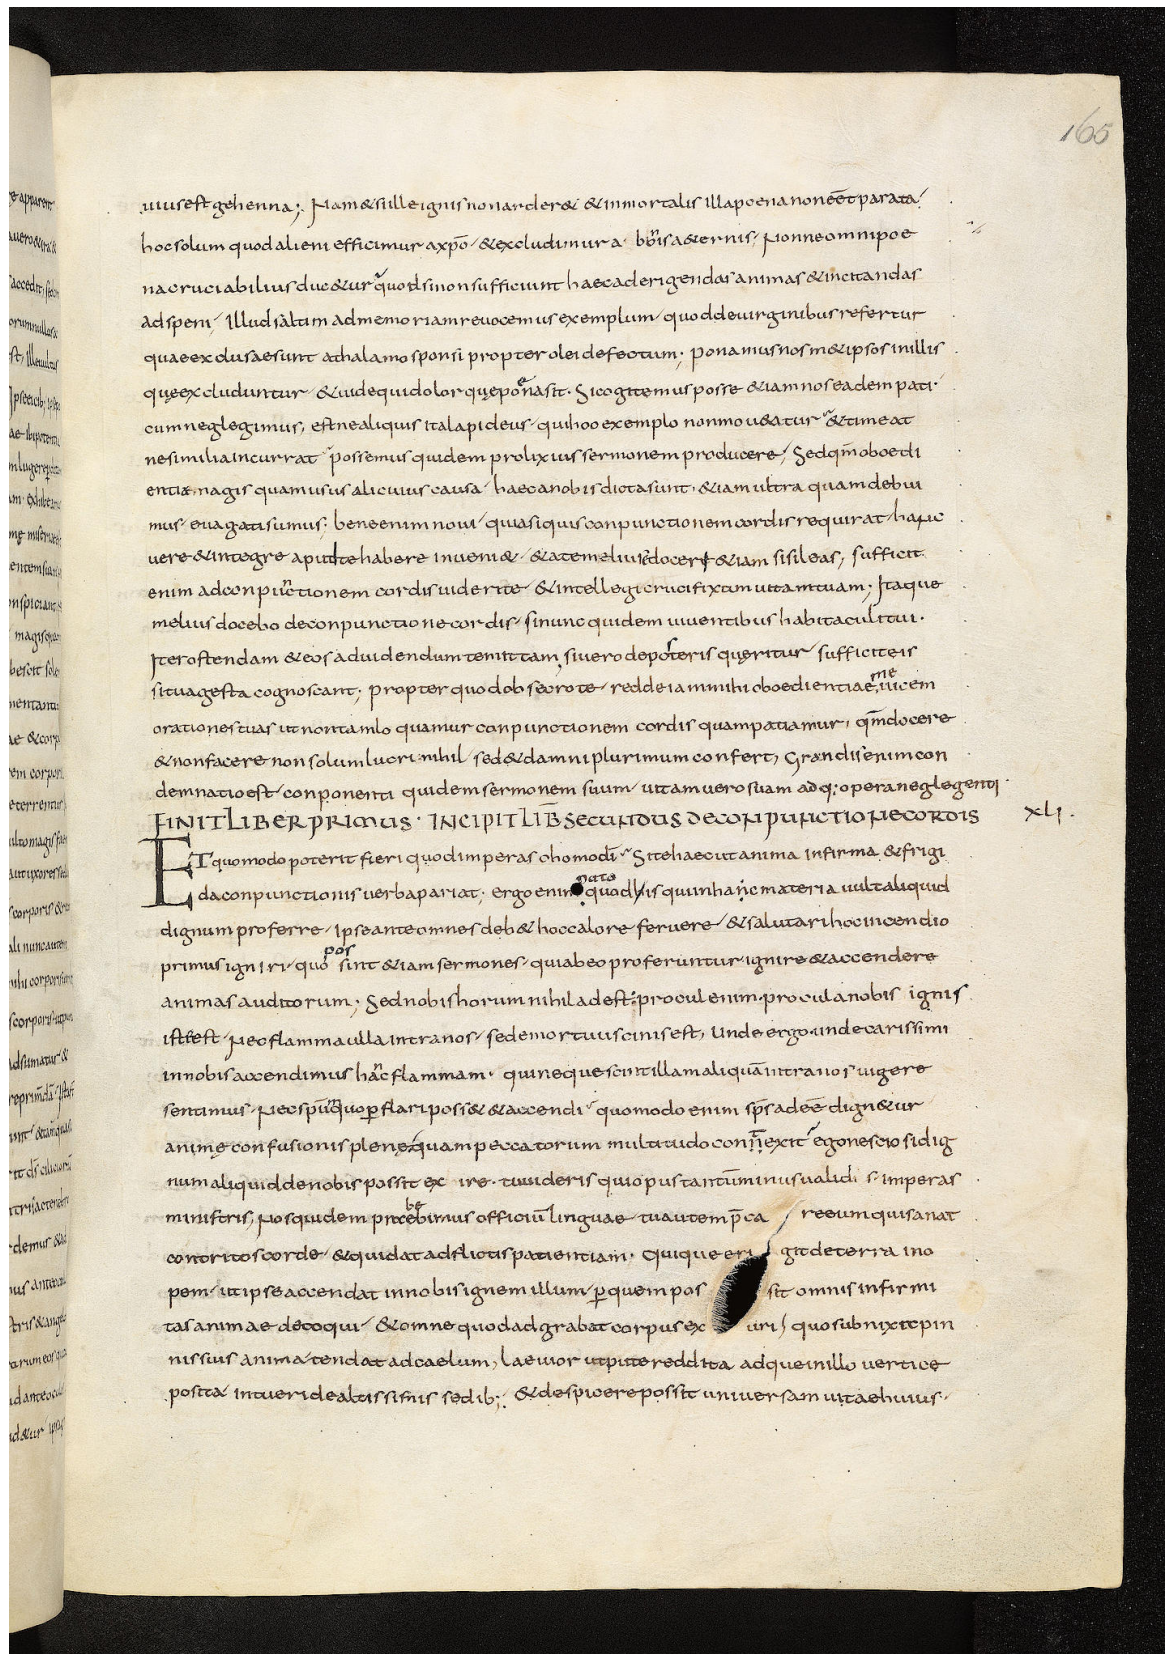 165
uius est gehenna; Nam & si ille ignis non arder& & inmortalis illa poena non eēt parata
hoc solum quod alieni efficimur a xpō & excludimur a bb̄is a&ernis Nonne omni poe
na cruciabilius duc&ur quod si non sufficiunt haec ad erigendas animas & incitandas
ad spem Illud saltim ad memoriam reuocemus exemplum quod de uirginibus refertur
quae exclusae sunt a thalamo sponsi propter olei defectum; ponamus nos m&ipsos in illis
quę excluduntur & uide qui dolor quę poena sit. Si cogitemus posse &iam nos eadem pati
cum neglegimus, est ne aliquis ita lapideus qui hoc exemplo non mou&atur & timeat
ne similia incurrat possemus quidem prolixius sermonem producere, Sed qm̄ oboedi
entiæ magis quam usus alicuius causa haec a nobis dicta sunt. &iam ultra quam debui
mus euagati sumus; bene enim noui quia si quis conpunctionem cordis requirat hanc
vere & integre aput te habere inueni& & a te melius docer& &iam si sileas, sufficit
enim ad conpunctionem cordis uidere te & intellegi crucifixam uitam tuam; Itaque
melius docebo de conpunctione cordis si nunc quidem viuentibus habitaculi tui.
Iter ostendam & eos ad uidendum te mittam, si uero de posteris quęritur sufficit eis
si tua gesta cognoscant; propter quod obsecro te redde iam mihi oboedientiae me uicem
orationes tuas ut non tam loquamur conpunctionem cordis quam patiamur, qm̄ docere
& non facere non solum lucri nihil sed & damni plurimum confert, Grandis enim con
demnatio est conponenti quidem sermonem suum uitam uero suam adq; opera neglegenti
FINIT LIBER PRIMUS. INCIPIT LIB̄ SECUNDUS DE CONPUNCTIONE CORDIS XLI.
ET quomodo poterit fieri quod imperas o homo dī Sitehaec ut anima infirma & frigi
da conpunctionis uerba pariat; ergo enim puto quod is qui in hanc materia uult aliquid
dignum proferre ipse ante omnes deb& hoc calore feruere & salutari hoc incendio
primus igniri quo possint &iam sermones qui ab eo proferuntur ignire & accendere
animas auditorum; Sed nobis horum nihil adest procul enim procul a nobis ignis
iste est Nec flamma ulla intra nos sed emortuus cinis est, Unde ergo unde carissimi
in nobis accendimus hāc flammam. qui neque scintillam aliquā intra nos uigere
sentimus Nec spū quo pflari poss& & accendi quomodo enim sp̄s ad eē dign&ur
animę confusionis plenę quam peccatorum multitudo con exit ego nescio si dig
num aliquid de nobis possit ex ire. tu uideris qui opus tantū minus ualidi s imperas
ministris, Nos quidem pręebebimus officiū linguae tu autem p̄ca reeum qui sanat
contritos corde & qui dat adflictis patientiam. Qui que eri git de terra ino
pem ut ipse accendat in nobis ignem illum p quem pos sit omnis infirmi
tas animae decoqui & omne quod ad grabat corpus ex uri, quo subnixit epin
nissuis anima tendat ad caelum, laeuior utpute reddita adque in illo vertice
posita intueri de altissimis sedib; & despicere possit universam uitae huius.